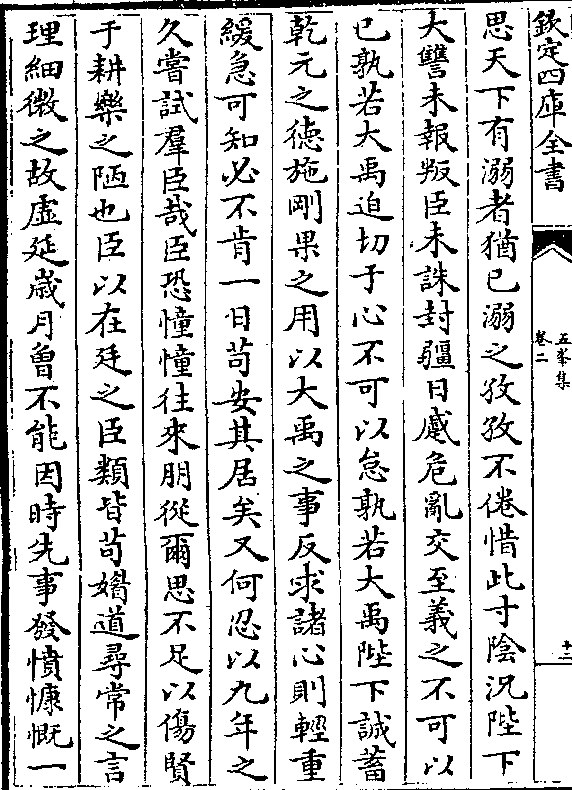 欽定四庫全書
五峯集
卷二
十二
思天下有溺者猶已溺之孜孜不倦惜此寸陰況陛下
大讐未報叛臣未誅封疆日蹙危亂交至義之不可以
已孰若大禹迫切于心不可以怠孰若大禹陛下誠蓄
乾元之德施剛果之用以大禹之事反求諸心則輕重
緩急可知必不肯一日苟安其居矣又何忍以九年之
久嘗試羣臣哉臣恐憧憧往來朋從爾思不足以傷賢
于耕樂之陋也臣以在廷之臣類皆苟媕道尋常之言
理細微之故虛延嵗月曾不能因時先事發憤慷慨一